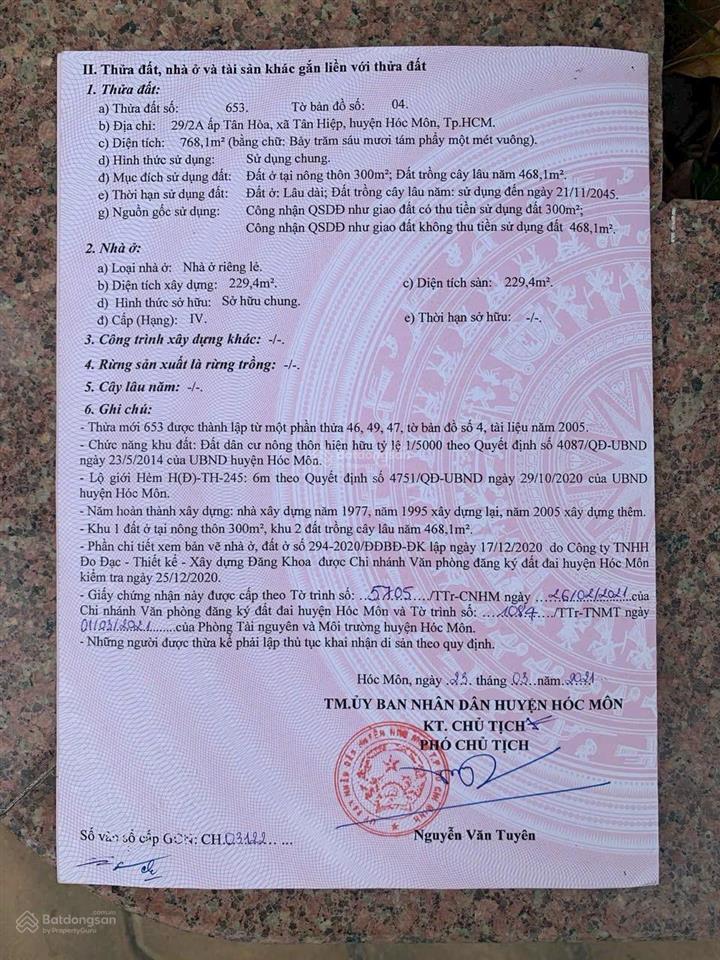 II. Thửa đất, nhà ở và tài sản khác gắn liền với thửa đất
1. Thửa đất:
a) Thửa đất số: 653. Tờ bản đồ số: 04.
b) Địa chỉ: 29/2A ấp Tân Hòa, xã Tân Hiệp, huyện Hóc Môn, Tp.HCM.
c) Diện tích: 768,1m² (bằng chữ: Bảy trăm sáu mươi tám phẩy một mét vuông).
d) Hình thức sử dụng: Sử dụng chung.
đ) Mục đích sử dụng đất: Đất ở tại nông thôn 300m²; Đất trồng cây lâu năm 468,1m².
e) Thời hạn sử dụng đất: Đất ở: Lâu dài; Đất trồng cây lâu năm: sử dụng đến ngày 21/11/2045.
g) Nguồn gốc sử dụng: Công nhận QSDĐ như giao đất có thu tiền sử dụng đất 300m²;
Công nhận QSDĐ như giao đất không thu tiền sử dụng đất 468,1m².
2. Nhà ở:
a) Loại nhà ở: Nhà ở riêng lẻ.
b) Diện tích xây dựng: 229,4m². c) Diện tích sàn: 229,4m².
d) Hình thức sở hữu: Sở hữu chung.
đ) Cấp (Hạng): IV. e) Thời hạn sở hữu: -/-.
3. Công trình xây dựng khác: -/-.
4. Rừng sản xuất là rừng trồng: -/-.
5. Cây lâu năm: -/-.
6. Ghi chú:
- Thửa mới 653 được thành lập từ một phần thửa 46, 49, 47, tờ bản đồ số 4, tài liệu năm 2005.
- Chức năng khu đất: Đất dân cư nông thôn hiện hữu tỷ lệ 1/5000 theo Quyết định số 4087/QĐ-UBND
ngày 23/5/2014 của UBND huyện Hóc Môn.
- Lộ giới Hẻm H(Đ)-TH-245: 6m theo Quyết định số 4751/QĐ-UBND ngày 29/10/2020 của UBND
huyện Hóc Môn.
- Năm hoàn thành xây dựng: nhà xây dựng năm 1977, năm 1995 xây dựng lại, năm 2005 xây dựng thêm.
- Khu 1 đất ở tại nông thôn 300m², khu 2 đất trồng cây lâu năm 468,1m².
- Phần chi tiết xem bản vẽ nhà ở, đất ở số 294-2020/ĐĐBĐ-ĐK lập ngày 17/12/2020 do Công ty TNHH
Đo Đạc - Thiết kế - Xây dựng Đăng Khoa được Chi nhánh Văn phòng đăng ký đất đai huyện Hóc Môn
kiểm tra ngày 25/12/2020.
- Giấy chứng nhận này được cấp theo Tờ trình số: 5705/TTr-CNHM ngày 26/02/2021 của
Chi nhánh Văn phòng đăng ký đất đai huyện Hóc Môn và Tờ trình số: 1084/TTr-TNMT ngày
01/03/2021 của Phòng Tài nguyên và Môi trường huyện Hóc Môn.
- Những người được thừa kế phải lập thủ tục khai nhận di sản theo quy định.
Hóc Môn, ngày 23 tháng 03 năm 2021
TM.ỦY BAN NHÂN DÂN HUYỆN HÓC MÔN
KT. CHỦ TỊCH
PHÓ CHỦ TỊCH
Nguyễn Văn Tuyên
Số vào sổ cấp GCN: CH.03122
Batdongsan.com.vn
by PropertyGuru